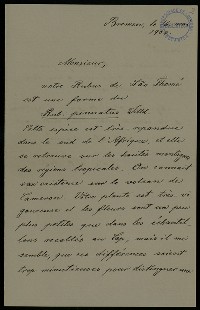 Bremen, le 26 mai
1900.
Monsieur,
votre Rubus de São Thomé
est une forme du
Rub. pinnatus Willd.
Cette espèce est très répandue
dans le sud de l'Afrique, et elle
se retrouve sur les hautes montagnes
des régions tropicales. On connaît
son existence sur le volcan de
Cameron. Votre plante est très vi-
goureuse et les fleurs sont un peu
plus petites que dans les échantil-
lons recoltés au Cap, mais il me
semble, que ces différences soient
trop minutieuses pour distinguer une